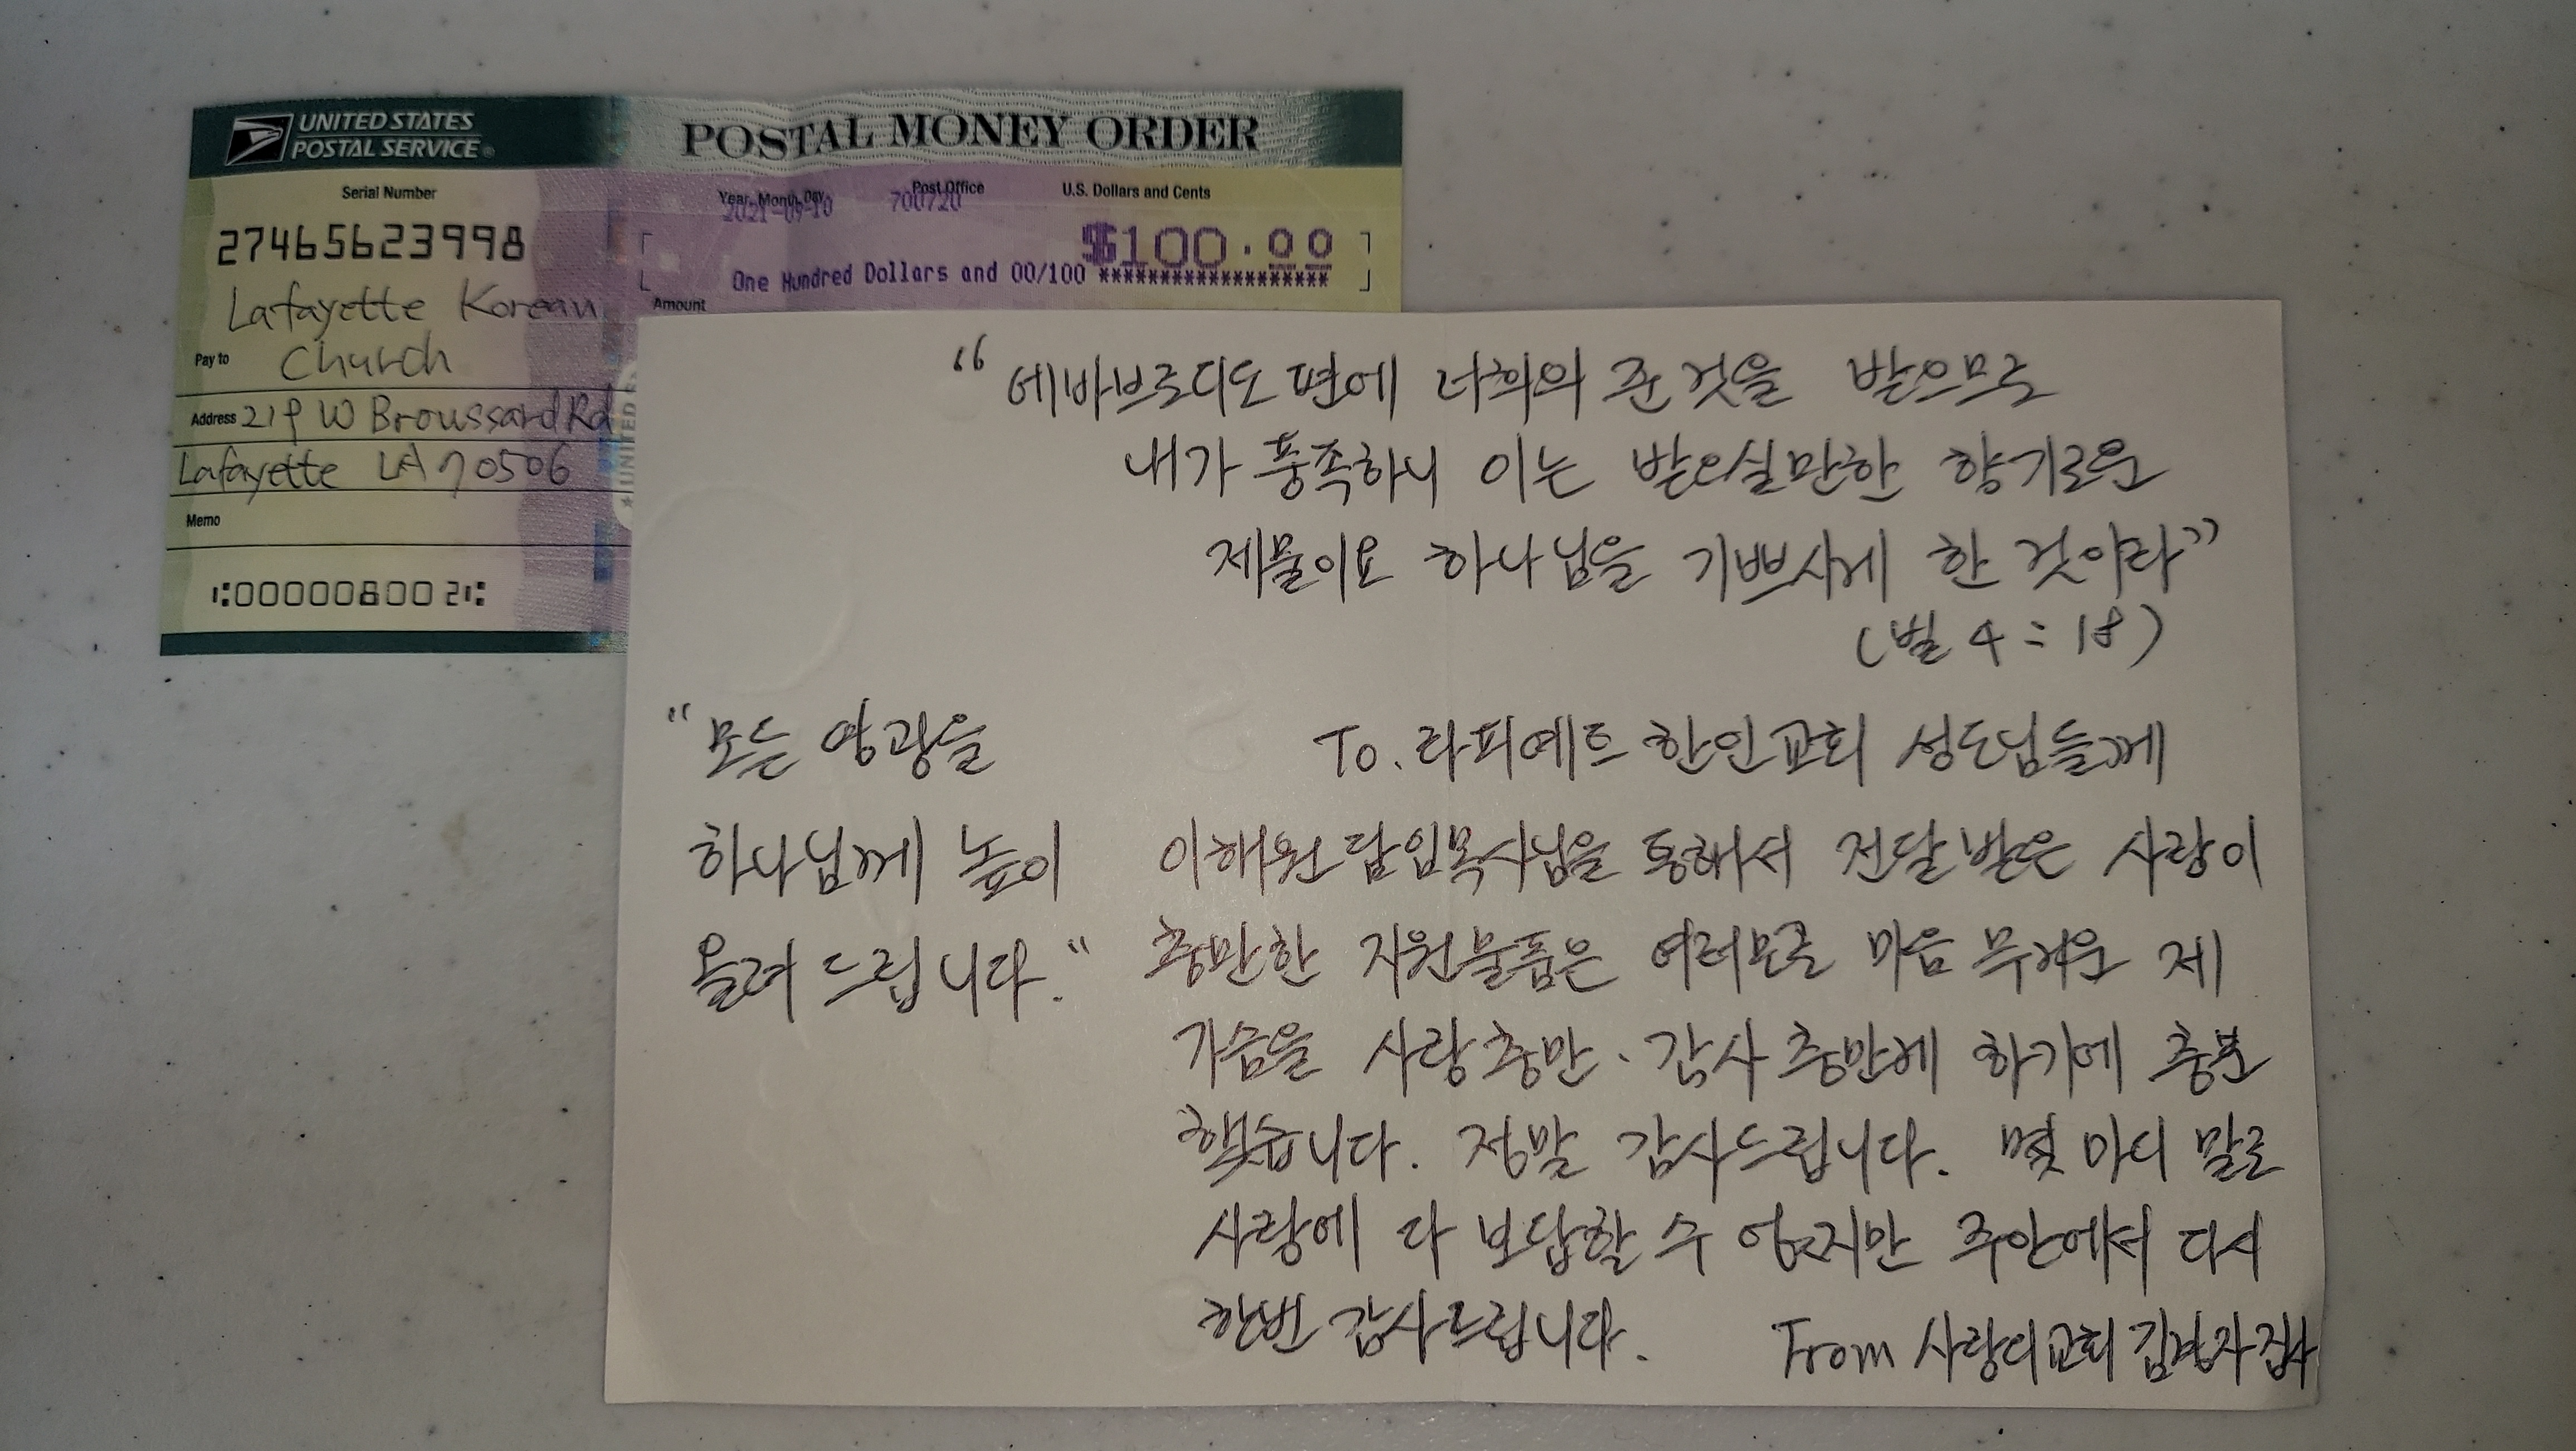 UNITED STATES
POSTAL SERVICE®
POSTAL MONEY ORDER
Serial Number
Year, Month, Day
Post Office
U.S. Dollars and Cents
2021-09-10
700720
27465623998
$100.00
One Hundred Dollars and 00/100 *******************
Amount
Lafayette Korean
Pay to
Church
Address 219 W Broussard Rd
Lafayette LA 70506
Memo
⑆000008002⑆
"에바브로디도 편에 너희의 준 것을 받으므로
내가 풍족하니 이는 받으실만한 향기로운
제물이요 하나님을 기쁘시게 한 것이라"
(빌 4:18)
"모든 영광을
하나님께 높이
올려 드립니다."
To. 라피에트 한인교회 성도님들께
이해원 담임목사님을 통해서 전달 받은 사랑이
충만한 지원물품은 여러모로 마음 무거운 제
가슴을 사랑충만·감사충만케 하기에 충분
했습니다. 정말 감사드립니다. 몇 마디 말로
사랑에 다 보답할 수 없지만 주안에서 다시
한번 감사드립니다.
From 사랑의교회 집사